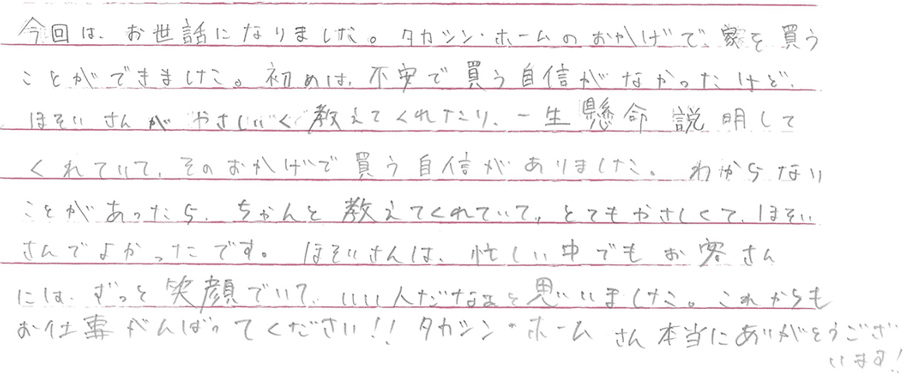 今回は、お世話になりました。タカシン・ホームのおかげで、家を買う
ことができました。初めは、不安で買う自信がなかったけど、
ほそいさんがやさしいく教えてくれたり、一生懸命説明して
くれていて、そのおかげで買う自信がありました。わからない
ことがあったら、ちゃんと教えてくれていて、とてもやさしくて、ほそい
さんでよかったです。ほそいさんは、忙しい中でもお客さん
には、ずっと笑顔でいて、いい人だなぁと思いました。これからも
お仕事がんばってください!!タカシン・ホームさん本当にありがとうござ
います!